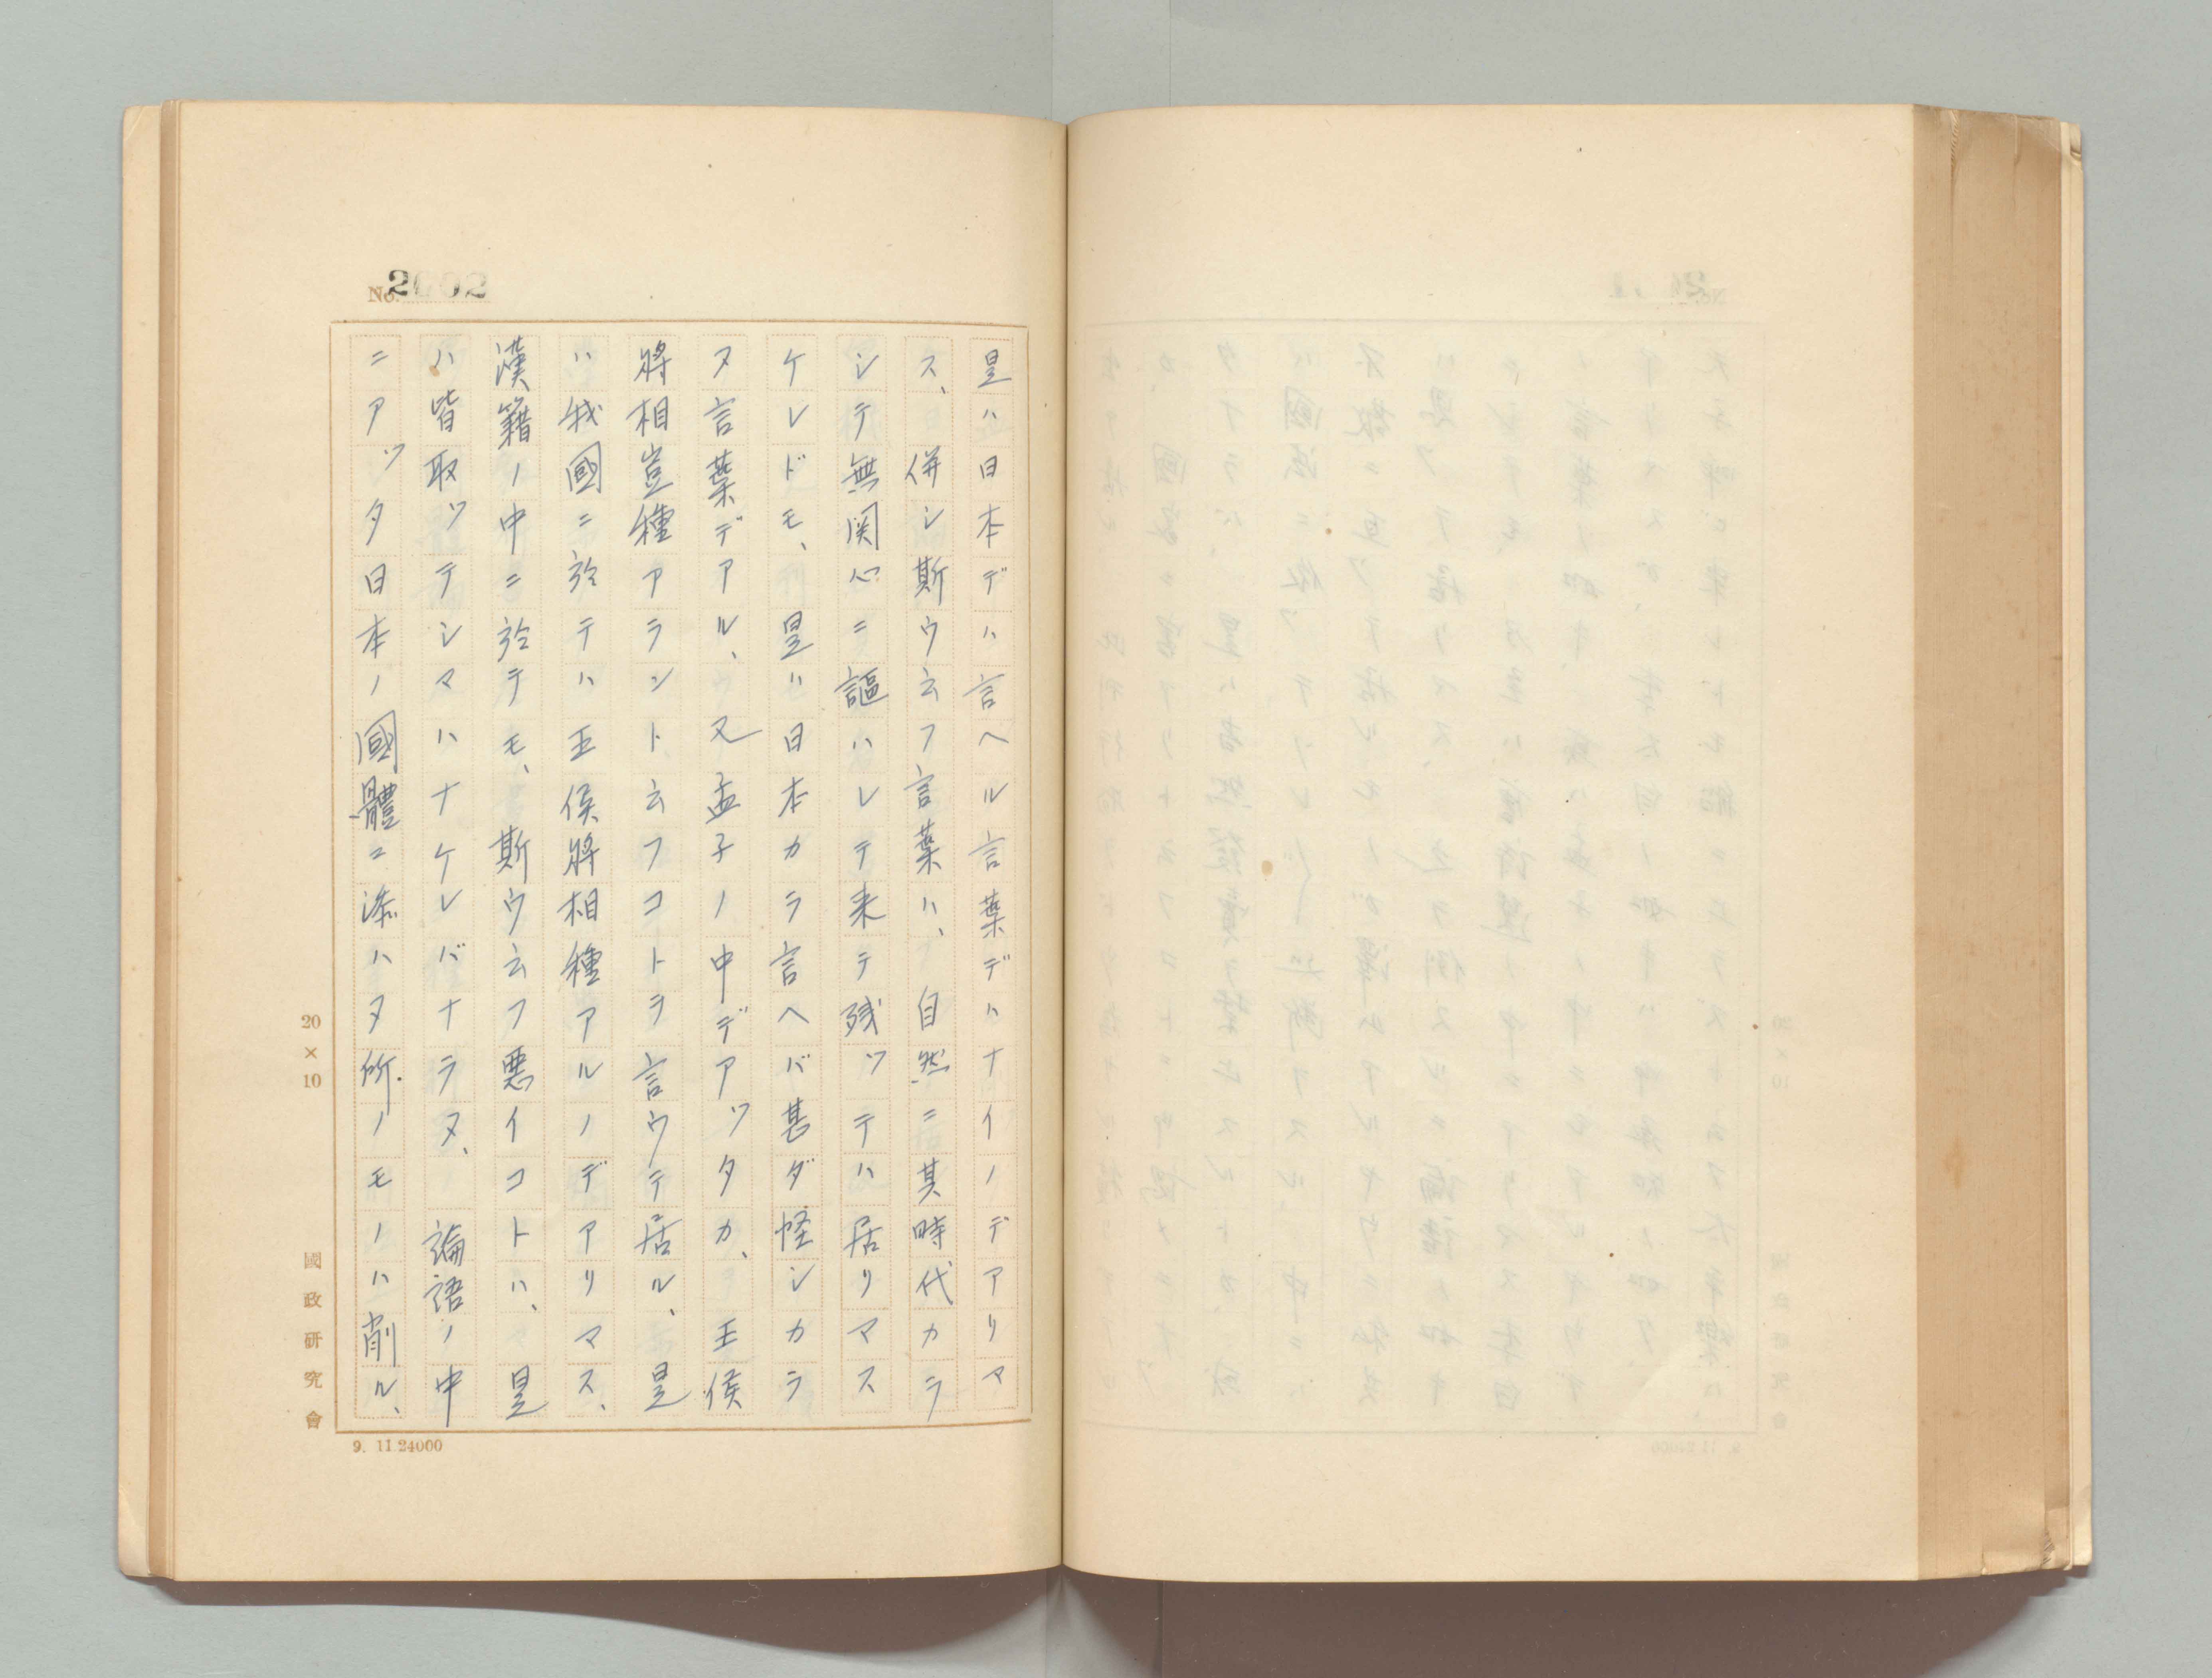 No. 2002
是ハ日本デハ言ヘル言葉デハナイノデアリマ
ス、併シ斯ウ云フ言葉ハ、自然ニ其時代カラ
シテ無関心ニ謳ハレテ来テ残ツテハ居リマス
ケレドモ、是ハ日本カラ言ヘバ甚ダ怪シカラ
ヌ言葉デアル、又孟子ノ中デアツタカ、王侯
將相豈種アラントト云フコトヲ言ウテ居ル、是
ハ我國ニ於テハ王侯將相種アルノデアリマス、
漢籍ノ中ニ於テモ、斯ウ云フ悪イコトハ、是
ハ皆取ツテシマハナケレバナラヌ、論語ノ中
ニアツタ日本ノ國體ニ添ハヌ所ノモノハ削ル、
20×10
國政研究會
9. 11.24000